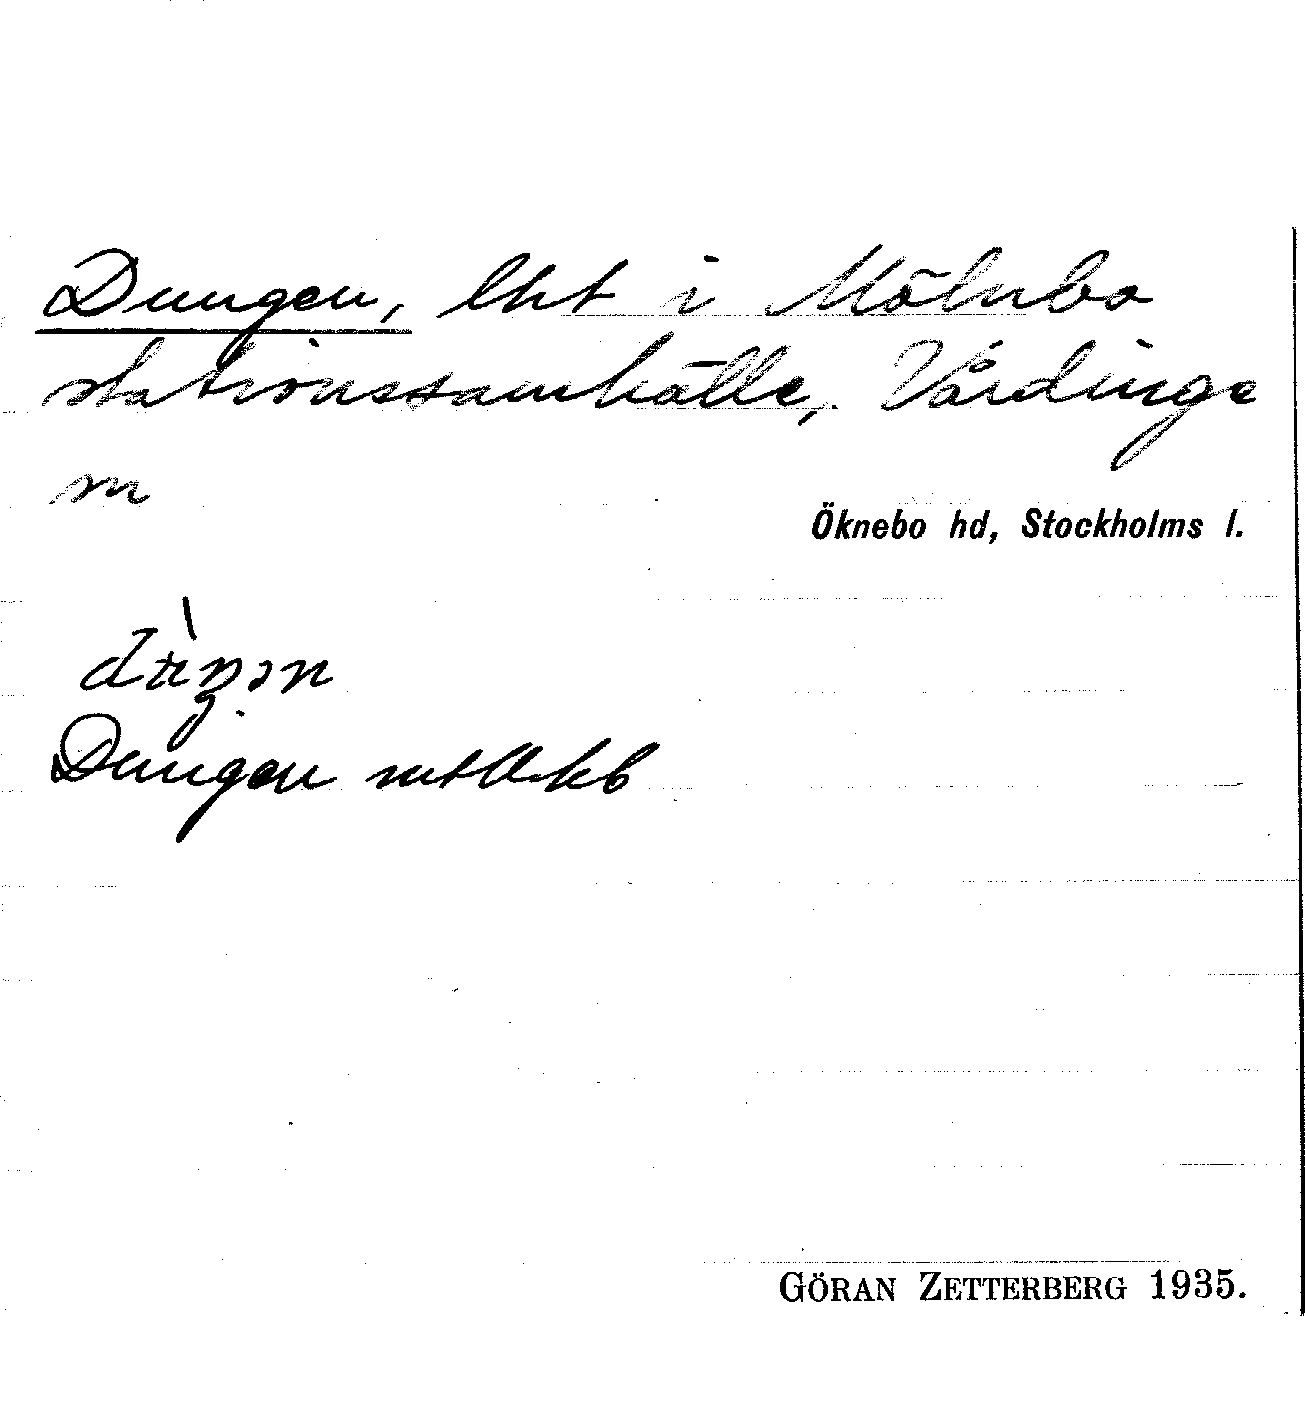 Dungen, lht i Mölnbo
stationssamhälle, Vårdinge
sn
Öknebo hd, Stockholms l.
Dungen
GÖRAN ZETTERBERG 1935.